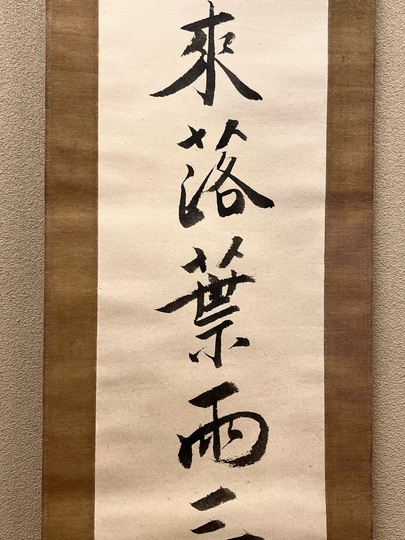 來落葉雨